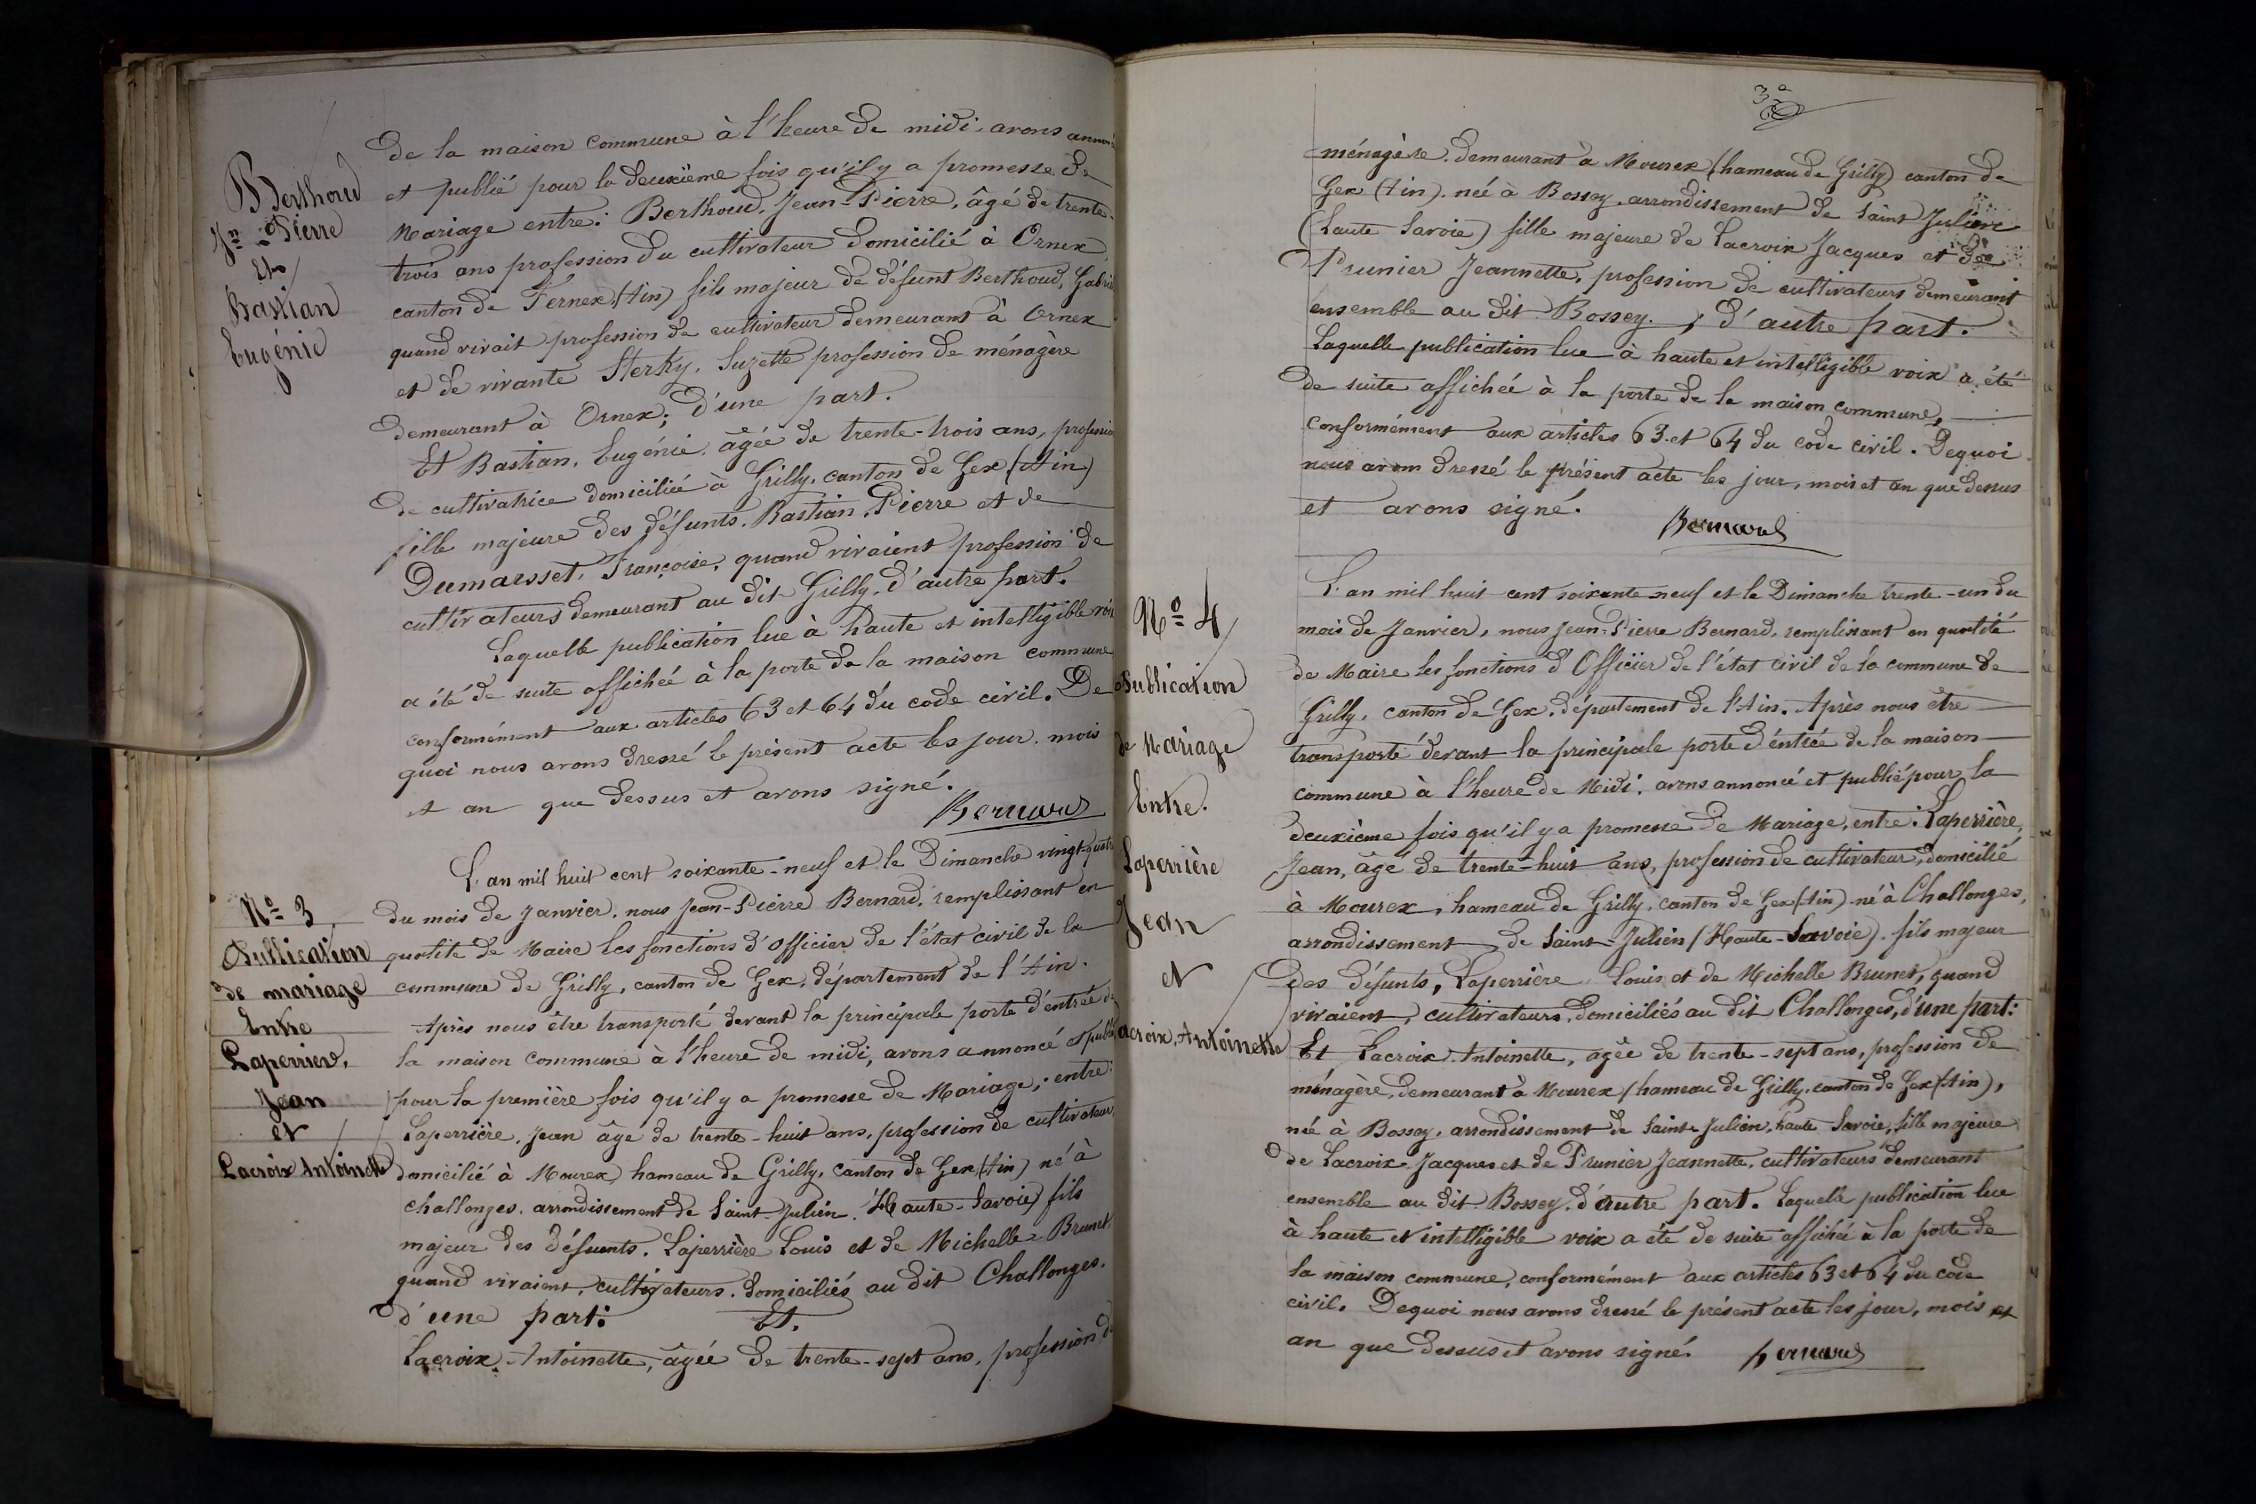 Berthoud
Jn Pierre
Et
Bastian
Eugénie
de la maison commune à l'heure de midi, avons annon
et publié pour la deuxième fois qu'il y a promesse de
Mariage entre: Berthoud, Jean-Pierre, âgé de trente-
trois ans profession du cultivateur domicilié à Ornex
canton de Fernex (Ain) fils majeur de défunt Berthoud, Gabri
quand vivait profession de cultivateur demeurant à Ornex
et de vivante Sterky, Suzette profession de ménagère
demeurant à Ornex; d'une part.
Et Bastian, Eugénie, âgée de trente-trois ans, profession
de cultivatrice domiciliée à Grilly, canton de Gex (Ain)
fille majeure des défunts. Bastian, Pierre et de
Dumarsset, Françoise, quand vivaient profession de
cultivateurs demeurant au dit Grilly, d'autre part.
Laquelle publication lue à haute et intelligible voix
a été de suite affichée à la porte de la maison commune
conformément aux articles 63 et 64 du code civil. De
quoi nous avons dressé le présent acte les jour, mois
et an que dessus et avons signé.
Bernard
No 3
Publication
de mariage
Entre
Laperrière,
Jean
et
Lacroix Antoinette
L'an mil huit cent soixante-neuf et le Dimanche vingt-quatre
du mois de Janvier, nous Jean-Pierre Bernard, remplissant en
qualité de Maire les fonctions d'officier de l'état civil de la
commune de Grilly, canton de Gex, département de l'Ain.
Après nous être transporté devant la principale porte d'entrée de
la maison commune à l'heure de midi, avons annoncé et publié
pour la première fois qu'il y a promesse de Mariage, entre:
Laperrière, Jean âge de trente-huit ans, profession de cultivateur,
domicilié à Mourex hameau de Grilly, canton de Gex (Ain) né à
challonges, arrondissement de Saint-Julien (Haute-Savoie) fils
majeur des défunts. Laperrière Louis et de Michelle Brunet,
quand vivaient, cultivateurs, domiciliés au dit Challonges.
d'une part: Et,
Lacroix Antoinette, âgée de trente-sept ans, profession de
3e
ménagère, demeurant à Mourex (hameau de Grilly) canton de
Gex (Ain), née à Bossey, arrondissement de Saint Julien
(haute Savoie) fille majeure de Lacroix Jacques et de
Prunier Jeannette, profession de cultivateurs demeurant
ensemble au dit Bossey; d'autre part.
Laquelle publication lue à haute et intelligible voix a été
de suite affichée à la porte de la maison commune,
conformément aux articles 63 et 64 du code civil. Dequoi
nous avons dressé le présent acte les jour, mois et an que dessus
et avons signé.
Bernard
No 4
Publication
de Mariage
Entre.
Laperrière
Jean
et
Lacroix, Antoinette
L'an mil huit cent soixante-neuf et le Dimanche trente-un du
mois de Janvier, nous Jean-Pierre Bernard, remplissant en qualité
de Maire les fonctions d'Officier de l'état civil de la commune de
Grilly, canton de Gex, département de l'Ain. Après nous être
transporté devant la principale porte d'entrée de la maison
commune à l'heure de Midi, avons annoncé et publié pour la
deuxième fois qu'il y a promesse de Mariage, entre: Laperrière,
Jean, âgé de trente-huit ans, profession de cultivateur, domicilié
à Mourex, hameau de Grilly, canton de Gex (Ain) né à Challonges,
arrondissement de Saint-Julien (Haute-Savoie), fils majeur
des défunts, Laperrière Louis et de Michelle Brunet, quand
vivaient, cultivateurs, domiciliés au dit Challonges, d'une part:
Et Lacroix Antoinette, agée de trente-sept ans, profession de
ménagère, demeurant à Mourex (hameau de Grilly, canton de Gex (Ain),
née à Bossey, arrondissement de Saint-Julien, haute Savoie, fille majeure
de Lacroix Jacques et de Prunier Jeannette, cultivateurs demeurant
ensemble au dit Bossey, d'autre part. Laquelle publication lue
à haute et intelligible voix a été de suite affichée à la porte de
la maison commune, conformément aux articles 63 et 64 du code
civil. Dequoi nous avons dressé le présent acte les jour, mois et
an que dessus et avons signé. Bernard